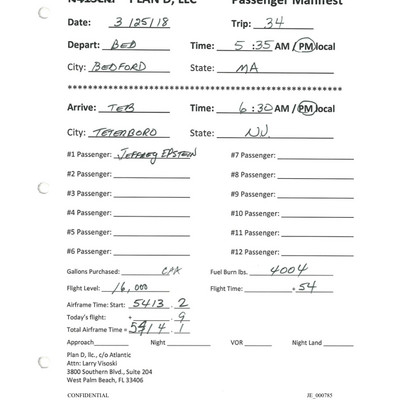 PLAN D, LLC Passenger Manifest
Date: 3/25/18 Trip: 34
Depart: BED Time: 5:35 AM / PM local
City: BEDFORD State: MA
Arrive: TEB Time: 6:30 AM / PM local
City: TETEBORO State: NJ.
#1 Passenger: JEFFREY EPSTEIN #7 Passenger:
#2 Passenger: #8 Passenger:
#3 Passenger: #9 Passenger:
#4 Passenger: #10 Passenger:
#5 Passenger: #11 Passenger:
#6 Passenger: #12 Passenger:
Gallons Purchased: Fuel Burn lbs. 4004
Flight Level: 16,000 Flight Time: .54
Airframe Time: Start: 5413.2
Today's flight: + .9
Total Airframe Time = 5414.1
Approach Night VOR Night Land
Plan D, llc., c/o Atlantic
Attn: Larry Visoski
3800 Southern Blvd., Suite 204
West Palm Beach, FL 33406
CONFIDENTIAL JE_000785